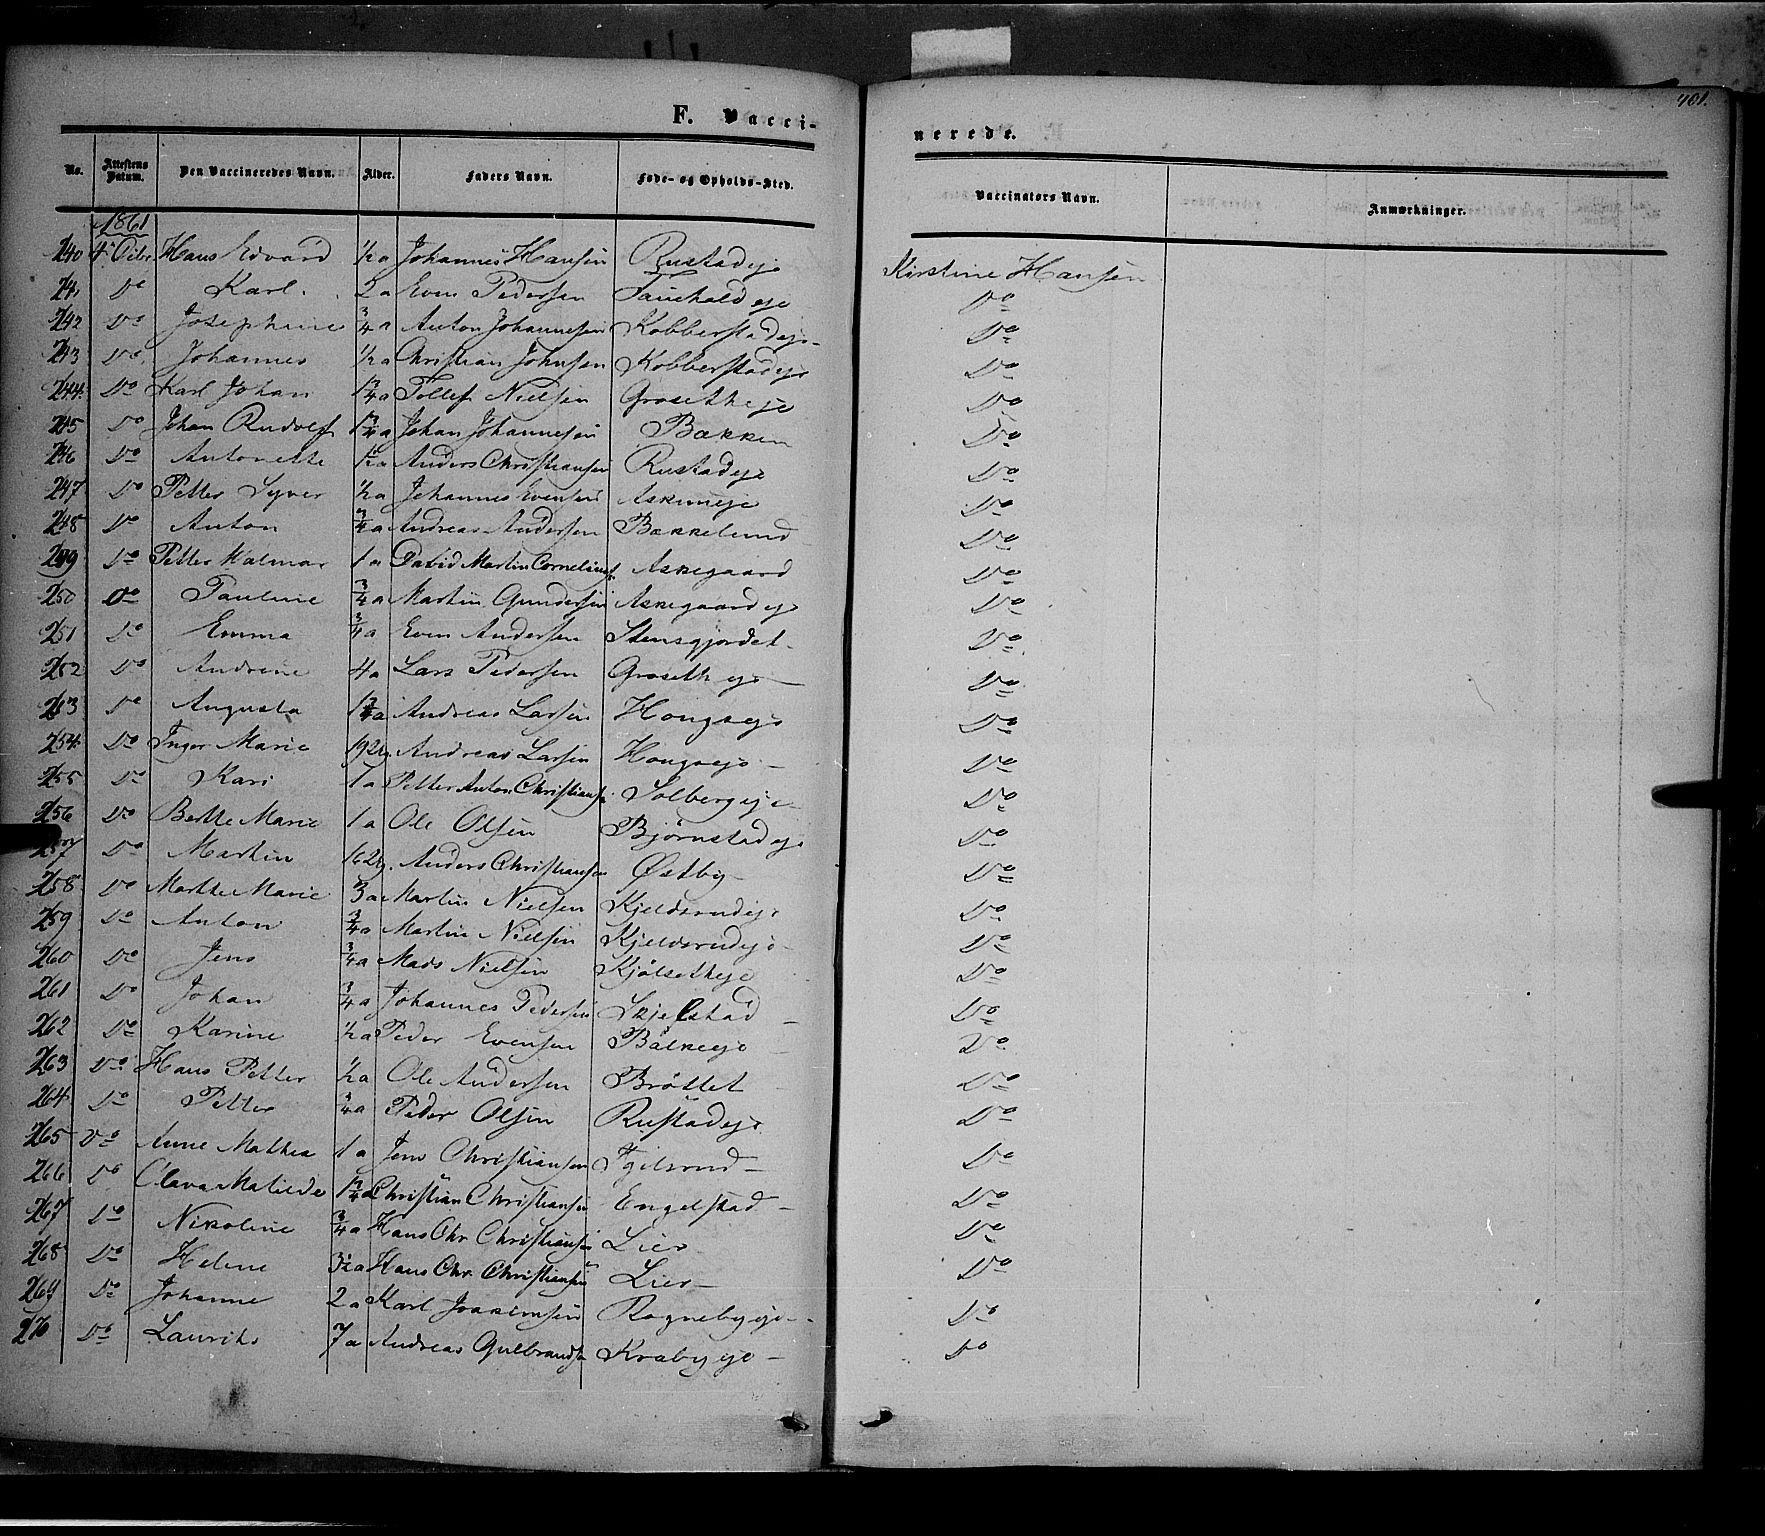 401.
F. Vaccinerede.
No. Attestens Datum. Den Vaccineredes Navn. Alder. Faders Navn. Føde- og Opholds-Sted. Vaccinators Navn. Anmærkninger.
1861
240 4 Hans Edvard ½ a Johannes Hansen Rustadeje Kirstine Hansen
241 Do Karl 2 a Even Pedersen Do
242 Do Josephine ¾ a Anton Johannesen Kobberstadeje Do
243 Do Johannes ½ a Christian Johnsen Kobberstadeje Do
244 Do Karl Johan Tollef Nielsen Grosetheje Do
245 Do Johan Rudolf Johan Johannesen Bakken Do
246 Do Antonette Anders Christiansen Rustadeje Do
247 Do Petter Syver ½ a Johannes Evensen Askimeje Do
248 Do Anton ¾ a Andreas Andersen Bakkelund Do
249 Do Petter Halmar 1 a David Martin Corneliusf. Askegaard Do
250 Do Pauline ¾ a Martin Gundersen Askegaardeje Do
251 Do Emma ¾ a Even Andersen Stensgjordet Do
252 Do Andrine 4 a Lars Pedersen Groseth eje Do
253 Do Augusta Andreas Larsen Hougseje Do
254 Do Inger Marie Andreas Larsen Hougseje Do
255 Do Kari 1 a Petter Anton Christiansen Solbergeje Do
256 Do Berthe Marie 1 a Ole Olsen Bjørnstadeje Do
257 Do Martin Anders Christiansen Østby Do
258 Do Marthe Marie 3 a Martin Nielsen Kjeldsrudeje Do
259 Do Anton ¾ a Martin Nielsen Kjeldsrudeje Do
260 Do Jens ¾ a Mads Nielsen Kjølsetheje Do
261 Do Johan ¾ a Johannes Pedersen Skjelstad Do
262 Do Karine ½ a Peder Evensen Bålkeeje Do
263 Do Hans Petter ½ a Ole Andersen Brøttet Do
264 Do Petter ¾ a Peder Olsen Rustadeje Do
265 Do Anne Mathea 1 a Jens Christiansen Igelsrud Do
266 Do Clara Matilde Christian Christiansen Engelstad Do
267 Do Nikoline ¾ a Hans Chr. Christiansen Lier Do
268 Do Helene Hans Chr. Christiansen Lier Do
269 Do Johanne 2 a Karl Joakimsen Rognebyeje Do
270 Do Lauritz 7 a Andreas Gulbrands Krabyeje Do